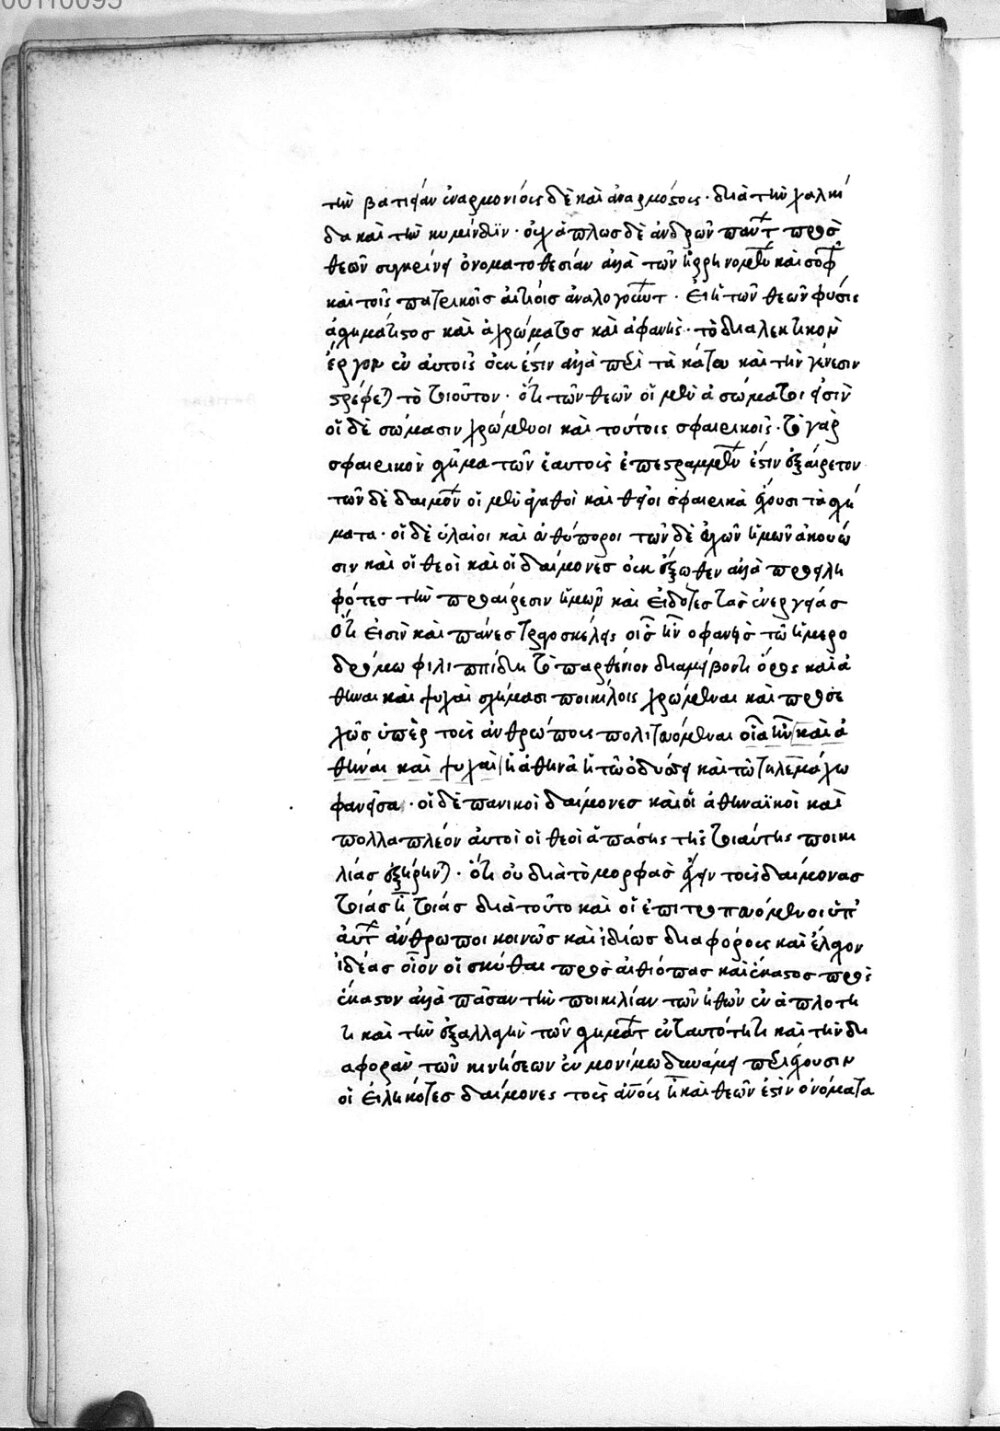 τὴν βατιείαν ἐναρμονίοις δὲ καὶ ἀναρμόστοις · διὰ τὴν χαλκί
δα καὶ τὴν κυμίνδιν · οὐχ ἁπλῶς δὲ ἀνδρῶν παντ πρὸς
θεῶν συγκρίνει ὀνοματοθεσίαν ἀλλὰ τῶν
καὶ τοῖς πατρικοῖς αἰτίοις ἀναλογούντ · ἐπὶ τῶν θεῶν φύσις
ἀσχημάτιστος καὶ ἀχρώματος καὶ ἀφανὴς · τὸ διαλεκτικὸν
ἔργον ἐν αὐτοῖς οὐκ ἔστιν ἀλλὰ περὶ τὰ κάτω καὶ τὴν γένεσιν
στρέφεται τὸ τοιοῦτον · ὅτι τῶν θεῶν οἱ μὲν ἀσώματοι εἰσὶν
οἱ δὲ σώμασιν χρώμενοι καὶ τούτοις σφαιρικοῖς · τὸ γὰρ
σφαιρικὸν σχῆμα τῶν ἑαυτοῖς ἐπεστραμμένων ἐστὶν ἐξαίρετον
τῶν δὲ δαιμόν οἱ μὲν ἀγαθοὶ καὶ θεῖοι σφαιρικὰ ἔχουσι τὰ σχή
ματα · οἱ δὲ ὑλαῖοι καὶ εὐθύποροι τῶν δὲ εὐχῶν ἡμῶν ἀκούω
σιν καὶ οἱ θεοὶ καὶ οἱ δαίμονες οὐκ ἔξωθεν ἀλλὰ προειλη
φότες τὴν προαίρεσιν ἡμῶν καὶ εἰδότες τὰς ἐνεργείας
ὅτι εἰσὶν καὶ πάνες τραγοσκελεῖς οἷος ἦν ὁ φανεὶς τῷ ἡμερο
δρόμῳ φιλιππίδῃ τὸ παρθένιον διαμείβοντι ὄρος καὶ ἀ
θηναι καὶ ψυχαὶ σχήμασι ποικίλοις χρώμεναι καὶ προσε
χῶς ὑπὲρ τοὺς ἀνθρώπους πολιτευόμεναι οἵα ἦν καὶ ἀ
θηναι καὶ ψυχαὶ ἡ ἀθηνᾶ ἡ τῷ ὀδυσσεῖ καὶ τῷ τηλεμάχῳ
φανεῖσα · οἱ δὲ πανικοὶ δαίμονες καὶ οἱ ἀθηναϊκοὶ καὶ
πολλαπλέον αὐτοὶ οἱ θεοὶ ἁπάσης τῆς τοιαύτης ποικι
λίας ἐξῄρηνται · ὅτι οὐ διὰ τὸ μορφὰς ἔχειν τοὺς δαίμονας
τοιάς ἢ τοιάς διὰ τοῦτο καὶ οἱ ἐπιτροπευόμενοι ὑπ'
αὐτ ἄνθρωποι κοινῶς καὶ ἰδίως διαφόρους καὶ ἔλαχον
ἰδέας οἷον οἱ σκύθαι πρὸς αἰθίοπας καὶ ἕκαστος πρὸς
ἕκαστον ἀλλὰ πᾶσαν τὴν ποικιλίαν τῶν ἠθῶν ἐν ἁπλότη
τι καὶ τὴν ἐξαλλαγὴν τῶν σχημάτ ἐν ταυτότητι καὶ τὴν δι
αφορὰν τῶν κινήσεων ἐν μονίμῳ δυνάμει περιέχουσιν
οἱ εἰληχότες δαίμονες τοὺς ἀνους καὶ θεῶν ἐστὶν ὀνόματα